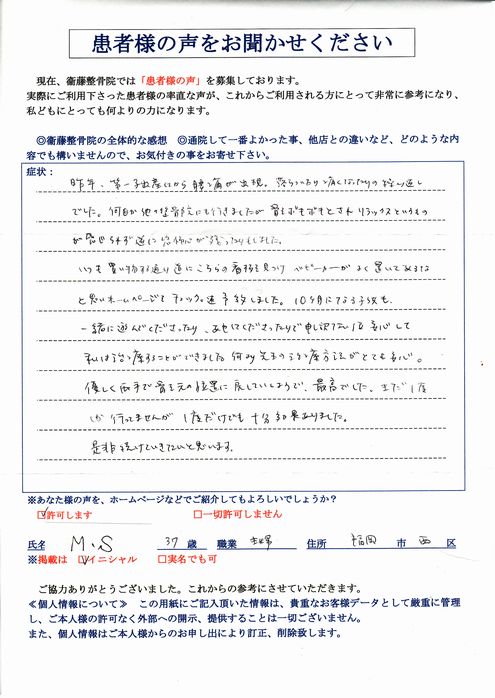 患者様の声をお聞かせください
現在、衞藤整骨院では「患者様の声」を募集しております。
実際にご利用下さった患者様の率直な声が、これからご利用される方にとって非常に参考になり、
私どもにとっても何よりの力になります。
◎衞藤整骨院の全体的な感想 ◎通院して一番よかった事、他店との違いなど、どのような内
容でも構いませんので、お気付きの事をお寄せ下さい。
症状：
昨年、第一子出産してから腰痛が出現。落ちついたり痛くなったりの繰り返し
でした。何日か他の整骨院にも行きましたが骨をボキボキとされリラックスというもの
が得られず逆に恐怖心が残ったりもしました。
いつも買い物する通り道にこちらの看板を見つけ ベビーカーがよく置いてあるな
と思いホームページをチェック、予約しました。10ヶ月になる子供も
一緒に遊んでくださったり、あやしてくださったりで申し訳ない位安心して
私は治療することができました。何より先生の治療方法がとても安心。
優しく両手で骨を元の位置に戻していくようで、最高でした。まだ1度
しか行ってませんが1度だけでも十分効果ありました。
是非続けていきたいと思います。
※あなた様の声を、ホームページなどでご紹介してもよろしいでしょうか？
☑許可します □一切許可しません
氏名 M.S 37 歳 職業 主婦 住所 福岡 市 西 区
※掲載は ☑イニシャル □実名でも可
ご協力ありがとうございました。これからの参考にさせていただきます。
≪個人情報について≫ この用紙にご記入頂いた情報は、貴重なお客様データとして厳重に管理
し、ご本人様の許可なく外部への開示、提供することは一切ございません。
また、個人情報はご本人様からのお申し出により訂正、削除致します。